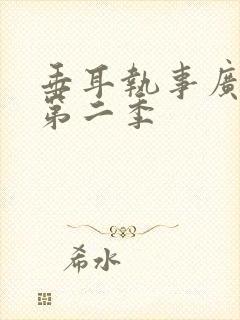 垂耳執事廣
第二季
希水